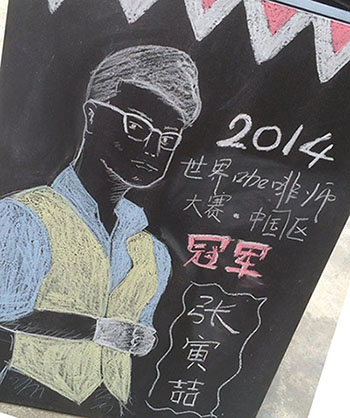 2014
世界咖啡师
大赛·中国区
冠军
张
寅
喆